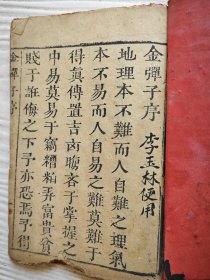 金彈子序
李玉林使用
地理本不難而人自難之理氣
本不易而人自易之難莫難于
得眞傳置吉凶聯客于掌握之
中易莫易于竊糟粕弄富貴貧
賤于誰侮之下予亦恐焉予得
金彈子序